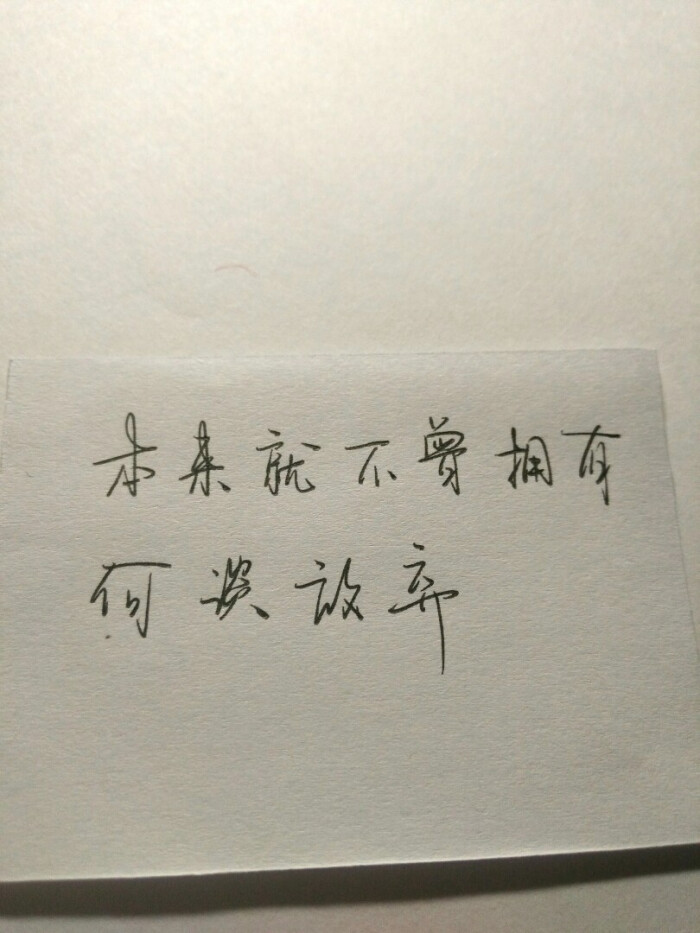 本来就不曾拥有
何谈放弃